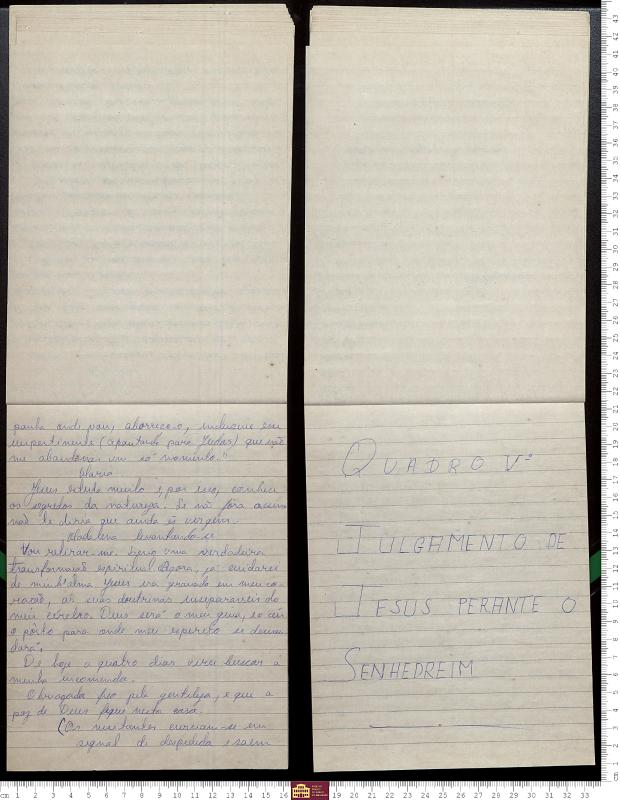 panha onde vou, aborrece-o, inclusive esse
impertinente (apontando para Judas) que não
me abandona um só momento."
Maria
Jesus estuda muito e, por isso, conhece
os segredos da natureza. Se não fora assim
não te diria que ainda és virgem.
Madalena levantando-se
Vou retirar-me. Levo uma verdadeira
transformação espiritual. Agora, já cuidarei
de minh'alma. Jesus vai gravado em meu co-
ração, as suas doutrinas inseparaveis do
meu cérebro. Deus será o meu guia, e o céu
o pôrto para onde meu espirito se
dará.
De hoje a quatro dias virei buscar a
minha encomenda.
Obrigada fico pela gentileza, e que a
paz de Deus fique nesta casa.
(Os visitantes curvam-se em
signal de despedida e saem
QUADRO Vº
JULGAMENTO DE
JESUS PERANTE O
SENHEDREIM